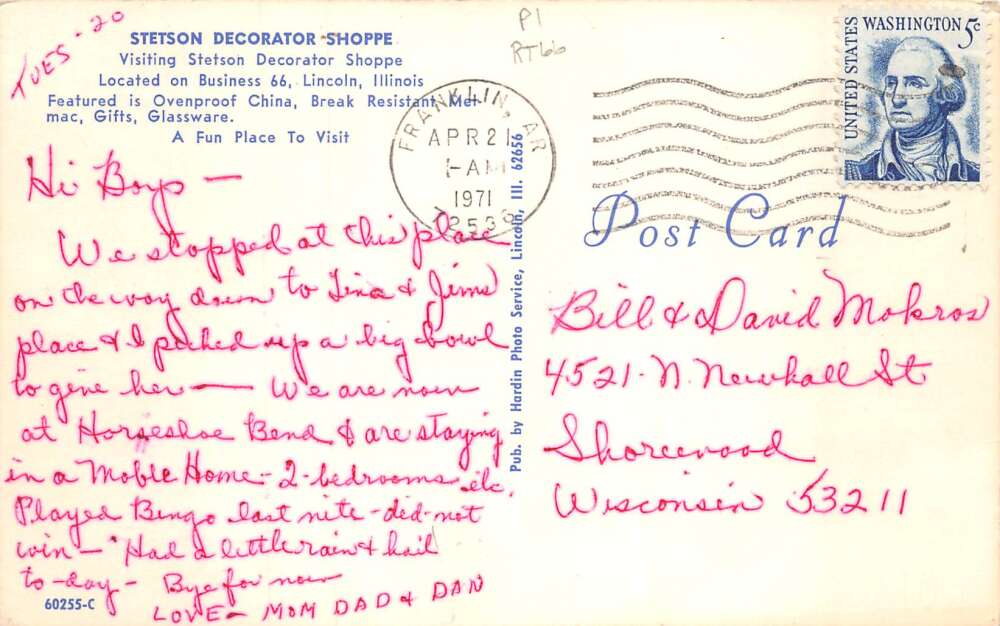 P1
RT66
TUES - 20
STETSON DECORATOR SHOPPE
Visiting Stetson Decorator Shoppe
Located on Business 66, Lincoln, Illinois
Featured is Ovenproof China, Break Resistant Mel-
mac, Gifts, Glassware.
A Fun Place To Visit
FRANKLIN, AR
APR 21
1-AM
1971
72536
UNITED STATES
WASHINGTON 5c
Post Card
Hi Boys —
We stopped at this place
on the way down to Tina & Jims
place & I picked up a big bowl
to give her — We are now
at Horseshoe Bend & are staying
in a Moble Home - 2-bedrooms etc.
Played Bingo last nite - did-not
win — Had a little rain & hail
to-day - Bye for now
LOVE - MOM DAD & DAN
60255-C
Pub. by Hardin Photo Service, Lincoln, Ill. 62656
Bill & David Mokros
4521 - N. Newhall St
Shorewood
Wisconsin 53211